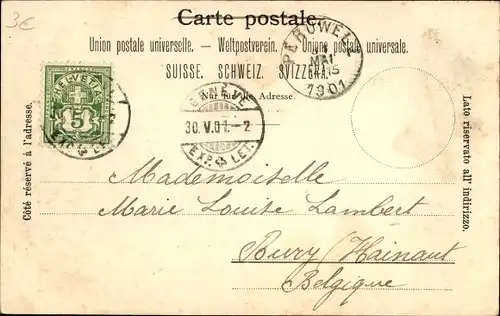 3€
Carte postale.
Union postale universelle. — Weltpostverein. — Unione postale universale.
SUISSE. SCHWEIZ. SVIZZERA.
PERUWELZ
1
MAI
15
1901
HELVETIA
5
GENÈVE
30.V.01.-2
EXP. LET.
Adresse.
Côté réservé à l'adresse.
Lato riservato all' indirizzo.
Mademoiselle
Marie Louise Lambert
Bury (Hainaut
Belgique